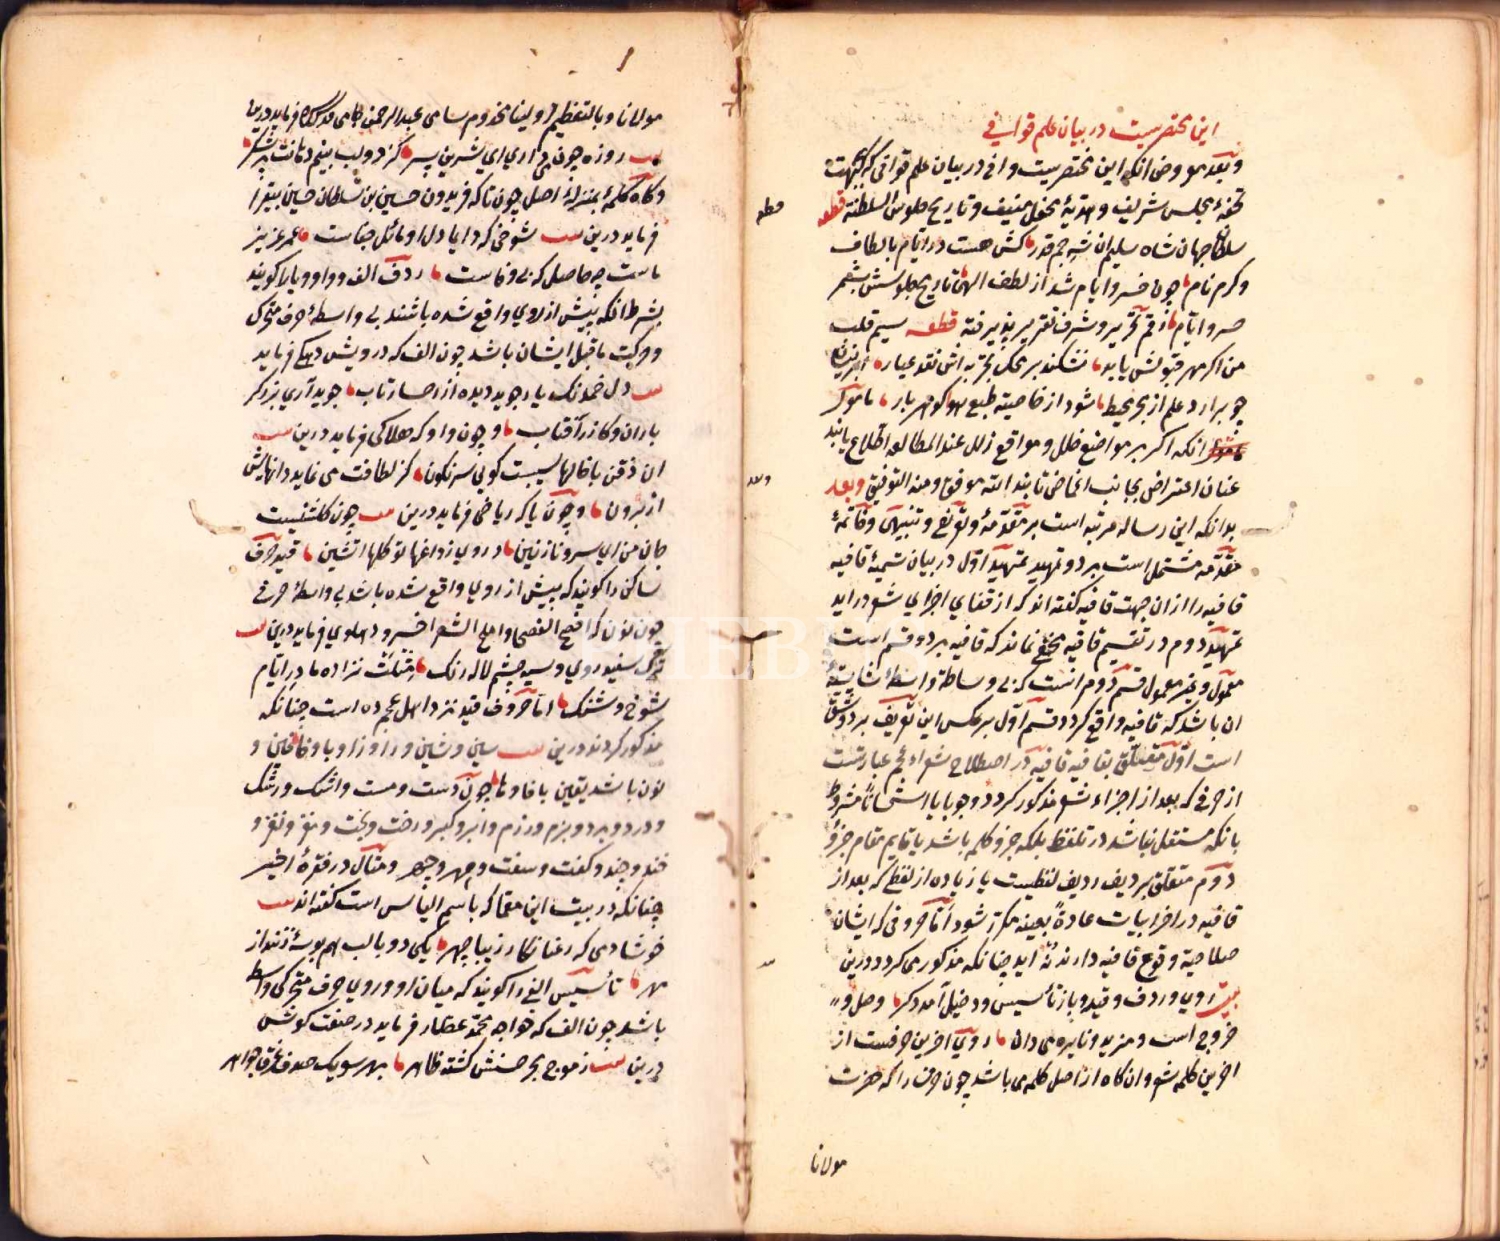 این مختصریست در بیان علم قوافی
و بعد معروض انکه این مختصریست وافی در بیان علم قوافی که بجهت
تحفهٔ مجلس شریف و هدیهٔ محفل منیف و تاریخ جلوس السلطنة قطعه
قطعه
سلطان جهان شاه سلیمان شیه جم قدر کش هست در ایام بالطاف
و کرم نام چون خسرو ایام شد از لطف الهی تاریخ جلوسش بشمر
خسرو ایام رقم تحریر و شرف تقریر پذیرفته قطعه سیم قلب
من اگر مهر قبولش یابد نشکند بر محک تجربه اش نقد عیار
چو برارد علم از بحر محیط شود از خاصیته طبع گوهر بار مامول
انکه اگر بر مواضع خلل و مواقع زلل عند المطالعه اطلاع یابند
عنان اعتراض بجانب اغماض تابند الله موفق و منه التوفیق و بعد
وبعد
بدانکه این رساله مرتبه است بر مقدمهٔ و تنبیهی و خاتمهٔ
مقدمه مشتمل است بر دو تمهید تمهید اول در بیان تسمیهٔ قافیه
قافیه را از ان جهت قافیه گفته اند که از قفای اجزای شعر در اید
تمهید دوم در تقسیم قافیه مخفی نماند که قافیه بر دو قسم است
معمول و غیر معمول قسم دوم انست که بی وساطة واسطهٔ شایستهٔ
ان باشد که قافیه واقع گردد و قسم اول بر عکس این تعریف بر دو شق
است اول متعلق بقافیه قافیه در اصطلاح شعراء عجم عبارتست
از حرفی که بعد از اجزاء شعر مذکور گردد وجوبا یا استحسانا مشروط
بانکه مستقل نباشد در تلفظ بلکه جزو کلمه باشد یا قایم مقام جزو
دوم متعلق بردیف ردیف لفظیست یا زیاده از لفظی که بعد از
قافیه در اخر ابیات عادةً بعینه مکرر شود اما حروفی که ایشان
صلاحیة وقوع قافیه دارند نه اید چنانکه مذکور می گردد درین
بیت روی و ردف و قید و باز تأسیس و دخیل آمد دگر وصل و
خروج است و مزید و نایره می دان روی اخرین حرفست از
اخرین کلمه شعر و ان گاه از اصل کلمه می باشد چون حرف را که حضرت
مولانا
مولانا و بالتعظیم اولینا مخدوم سامی عبدالرحمن جامی قدس سره فرماید درین
بیت روزه چون می داری ای شیرین پسر کز دو لب بینم دهانت پر شکر
و گاه کلمهٔ بمنزلهٔ اصل چون تا که فریدون حسین بن سلطان حسین بیقرا
فرماید درین بیت شوخی که دایا دل او مائل جفاست عمر عزیز
ماست چه حاصل که بی وفاست ردف الف و واو و یا را گویند
بشرط انکه پیش از روی واقع شده باشند بی واسطهٔ حرف متحرک
و حرکت ماقبل ایشان باشد چون الف که درویش دهکی فرماید
بیت دل خدنگ یار جوید دیده از رخسار تاب جوید آری بزرگر
باران و گازر آفتاب و چون واو که هلاکی فرماید درین بیت
ان ذقن با خالها سیبست گویی سرنگون کز لطافت می نماید دانهایش
از برون و چون یا که ریاضی فرماید درین بیت چون گلشنیست
جان من ای سرو نازنین در وی ز داغها تو گلها اتشین قید حرف
ساکن را گویند که پیش از روی واقع شده باشد بی واسطهٔ حرفی
چون نون که افصح الفصحا و املح الشعرا خسرو دهلوی فرماید درین بیت
ترک سفید روی و سیه چشم لاله رنگ مثلت نزاده مادر ایام
شوخ و شنگ اما حروف قید نزد اهل عجم ده است چنانکه
مذکور گردند درین بیت سین و شین و را و زا و با و خا و غین و
نون باشد یقین با فا و ها چون دست و مست و اشک و رشک
و درد و برد و بزم و رزم و ابر و گبر و رخت و بخت و مغز و نغز و
قند و چند و گفت و سفت و مهر و چهر و مثال در فقرهٔ اخیر
چنانکه در بیت این معما که باسم الیاس است گفته اند بیت
خوشا دمی که رعنا نگار زیبا چهر یکی دو بالب هم بوسهٔ زند از
مهر تأسیس الفی را گویند که میان او و روی حرف متحرکی واسطه
باشد چون الف که خواجه محمد عصار فرماید در صنعت گوشش
درین بیت ز موج بحر حسنش گشته ظاهر بهر سو یک صدف غرق جواهر